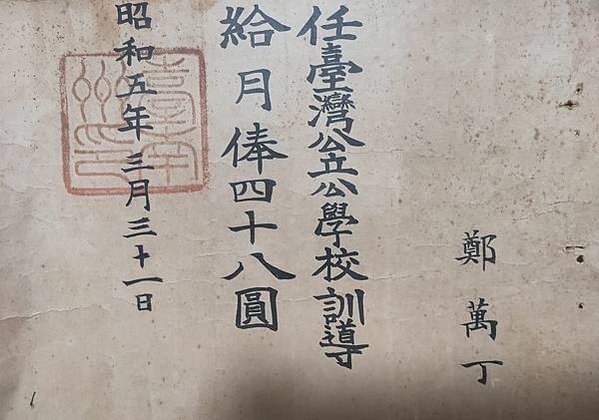 鄭萬丁
任臺灣公立公學校訓導
給月俸四十八圓
昭和五年三月三十一日
臺南州印